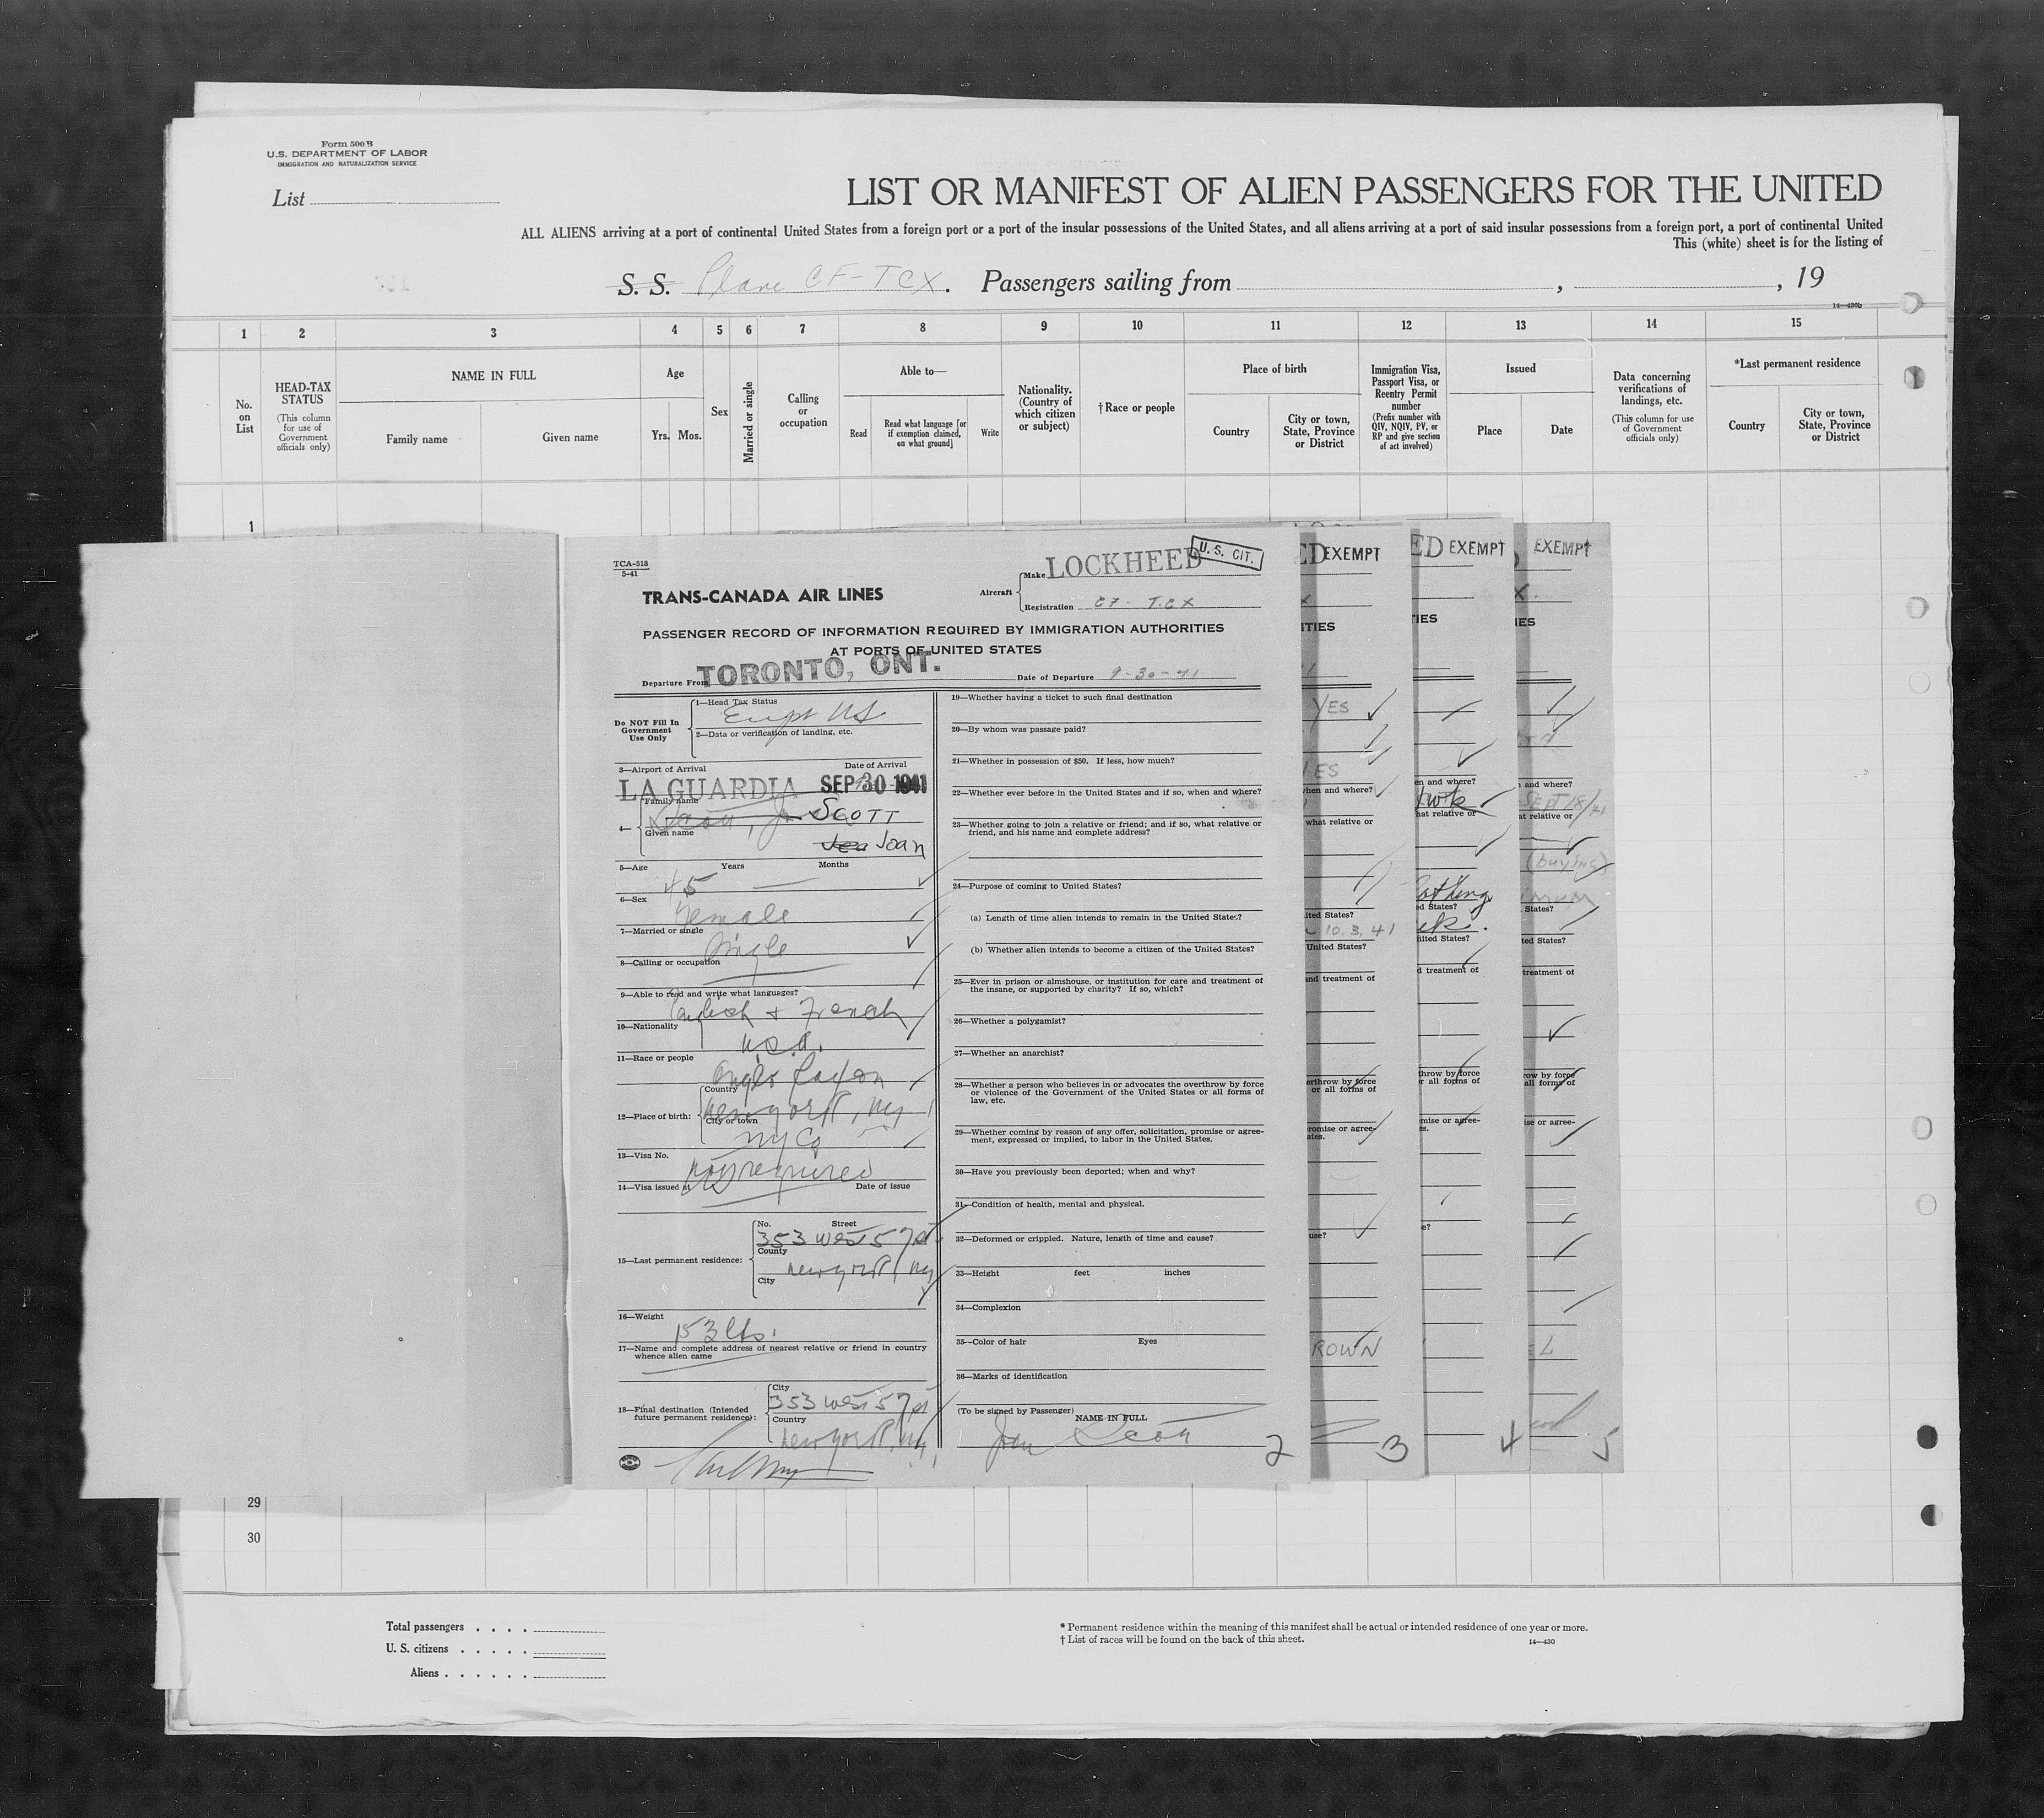 Form 500 B
U.S. DEPARTMENT OF LABOR
IMMIGRATION AND NATURALIZATION SERVICE
List
LIST OR MANIFEST OF ALIEN PASSENGERS FOR THE UNITED
ALL ALIENS arriving at a port of continental United States from a foreign port or a port of the insular possessions of the United States, and all aliens arriving at a port of said insular possessions from a foreign port, a port of continental United
This (white) sheet is for the listing of
S. S. Plane CF-TCX. Passengers sailing from , , 19
14—430b
1 2 3 4 5 6 7 8 9 10 11 12 13 14 15
No. on List
HEAD-TAX STATUS
(This column for use of Government officials only)
NAME IN FULL
Family name
Given name
Age
Yrs. Mos.
Sex
Married or single
Calling or occupation
Able to—
Read
Read what language [or if exemption claimed, on what ground]
Write
Nationality. (Country of which citizen or subject)
†Race or people
Place of birth
Country
City or town, State, Province or District
Immigration Visa, Passport Visa, or Reentry Permit number
(Prefix number with QIV, NQIV, PV, or RP and give section of act involved)
Issued
Place
Date
Data concerning verifications of landings, etc.
(This column for use of Government officials only)
*Last permanent residence
Country
City or town, State, Province or District
1
TCA-518
5-41
TRANS-CANADA AIR LINES
Aircraft
Make LOCKHEED
U. S. CIT.
Registration CF-TCX
PASSENGER RECORD OF INFORMATION REQUIRED BY IMMIGRATION AUTHORITIES
AT PORTS OF UNITED STATES
Departure From TORONTO, ONT.
Date of Departure 9-30-41
Do NOT Fill In
Government
Use Only
1—Head Tax Status
US
2—Data or verification of landing, etc.
3—Airport of Arrival
Date of Arrival
LA GUARDIA SEP 30 1941
4—
Family name
SCOTT
Given name
Joan
5—Age Years Months
45 —
6—Sex
Female
7—Married or single
Single
8—Calling or occupation
9—Able to read and write what languages?
English + French
10—Nationality
U.S.A.
11—Race or people
Anglo Saxon
12—Place of birth:
Country
New York, NY
City or town
NY Co
13—Visa No.
Not required
14—Visa issued at
Date of issue
15—Last permanent residence:
No. Street
353 West 57 St
County
New York, NY
City
16—Weight
153 lbs.
17—Name and complete address of nearest relative or friend in country
whence alien came
18—Final destination (Intended
future permanent residence):
City
353 West 57 St
Country
New York, NY
19—Whether having a ticket to such final destination
20—By whom was passage paid?
21—Whether in possession of $50. If less, how much?
22—Whether ever before in the United States and if so, when and where?
23—Whether going to join a relative or friend; and if so, what relative or
friend, and his name and complete address?
24—Purpose of coming to United States?
(a) Length of time alien intends to remain in the United States?
(b) Whether alien intends to become a citizen of the United States?
25—Ever in prison or almshouse, or institution for care and treatment of
the insane, or supported by charity? If so, which?
26—Whether a polygamist?
27—Whether an anarchist?
28—Whether a person who believes in or advocates the overthrow by force
or violence of the Government of the United States or all forms of
law, etc.
29—Whether coming by reason of any offer, solicitation, promise or agree-
ment, expressed or implied, to labor in the United States.
30—Have you previously been deported; when and why?
31—Condition of health, mental and physical.
32—Deformed or crippled. Nature, length of time and cause?
33—Height feet inches
34—Complexion
35—Color of hair Eyes
36—Marks of identification
(To be signed by Passenger)
NAME IN FULL
Joan Scott
2
ED EXEMPT
ITIES
YES
ES
when and where?
what relative or
ited States?
10. 3. 41
United States?
and treatment of
erthrow by force
or all forms of
romise or agree-
ates.
use?
ROWN
3
ED EXEMPT
TIES
en and where?
hat relative or
othing
ed States?
nited States?
d treatment of
hrow by force
r all forms of
mise or agree-
es.
e?
4
EXEMPT
X.
IES
n and where?
SEPT 18/41
at relative or
(buying)
States?
ted States?
treatment of
row by force
all forms of
ise or agree-
EL
5
29
30
Total passengers . . . .
U. S. citizens . . . . .
Aliens . . . . . .
* Permanent residence within the meaning of this manifest shall be actual or intended residence of one year or more.
† List of races will be found on the back of this sheet.
14—430